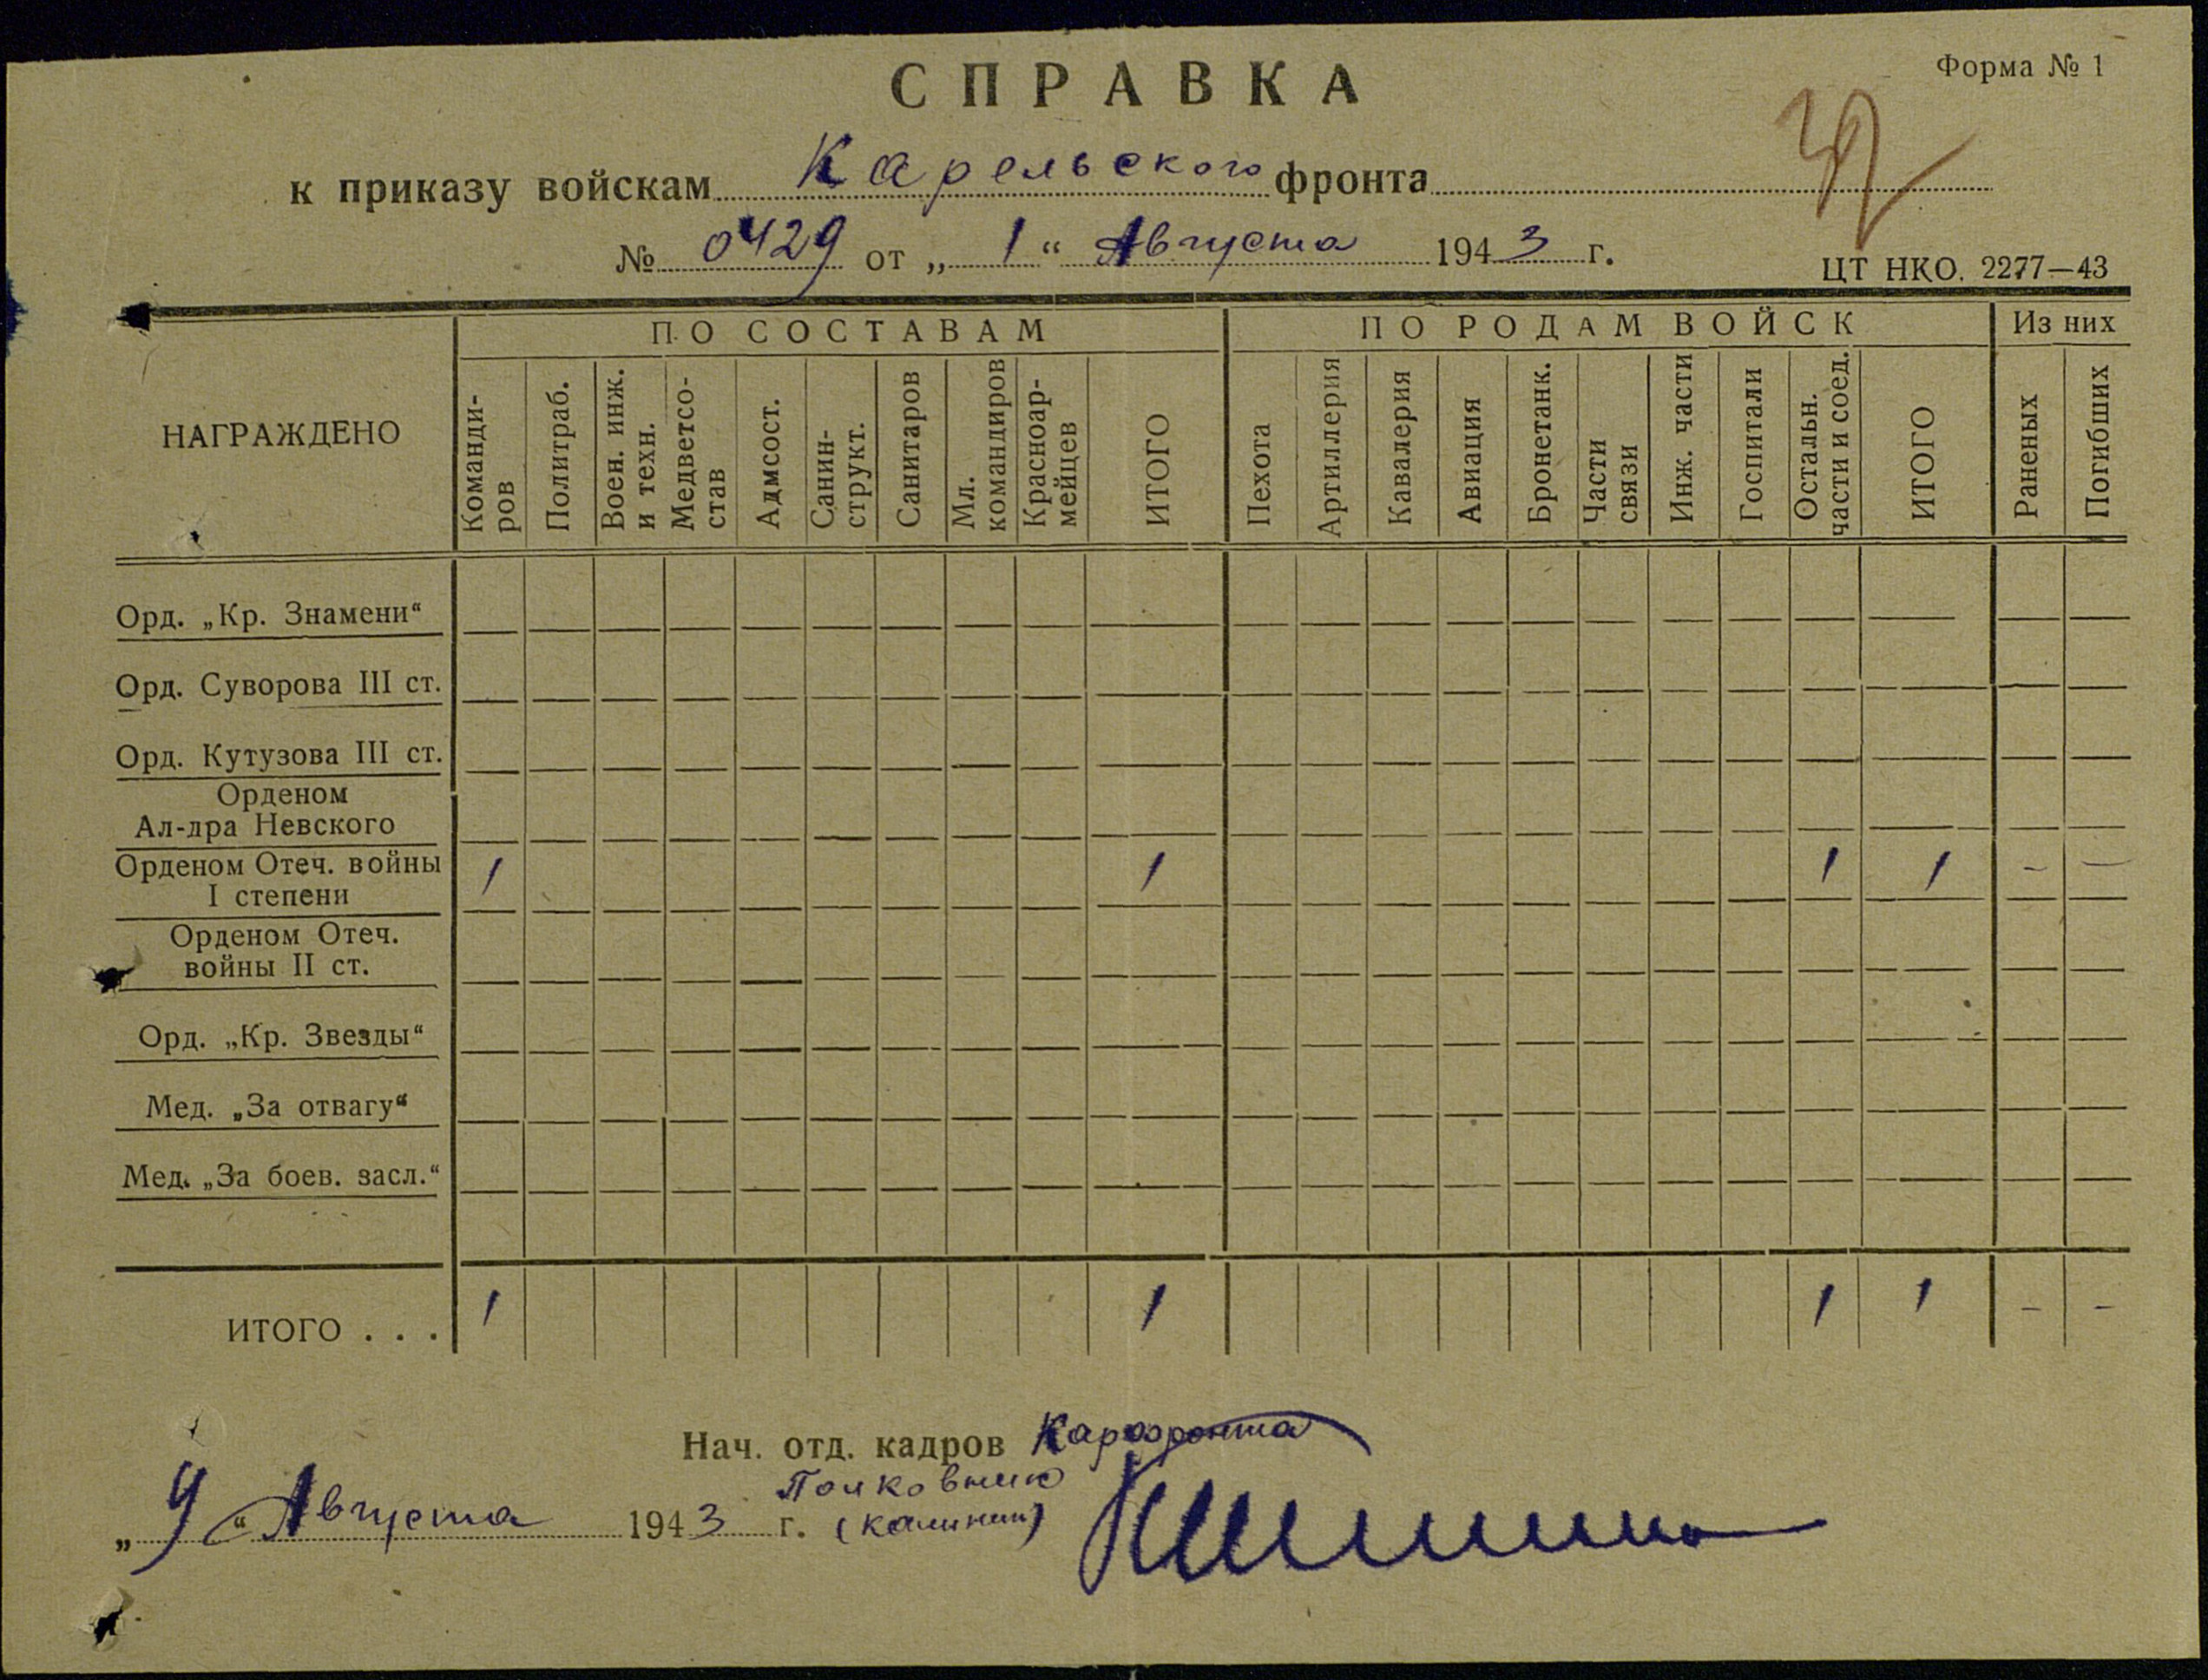 Форма № 1
СПРАВКА
к приказу войскам Карельского фронта
№ 0429 от „1“ Августа 1943 г.
ЦТ НКО. 2277—43
НАГРАЖДЕНО
ПО СОСТАВАМ
ПО РОДАМ ВОЙСК
Из них
Команди-
ров
Политраб.
Воен. инж.
и техн.
Медветсо-
став
Адмсост.
Санин-
структ.
Санитаров
Мл.
командиров
Красноар-
мейцев
ИТОГО
Пехота
Артиллерия
Кавалерия
Авиация
Бронетанк.
Части
связи
Инж. части
Госпитали
Остальн.
части и соед.
ИТОГО
Раненых
Погибших
Орд. „Кр. Знамени“
Орд. Суворова III ст.
Орд. Кутузова III ст.
Орденом
Ал-дра Невского
Орденом Отеч. войны
I степени
1 1 1 1 – –
Орденом Отеч.
войны II ст.
Орд. „Кр. Звезды“
Мед. „За отвагу“
Мед. „За боев. засл.“
ИТОГО . . . 1 1 1 1 – –
Нач. отд. кадров Карфронта
Полковник
„9“ Августа 1943 г. (Калинин)